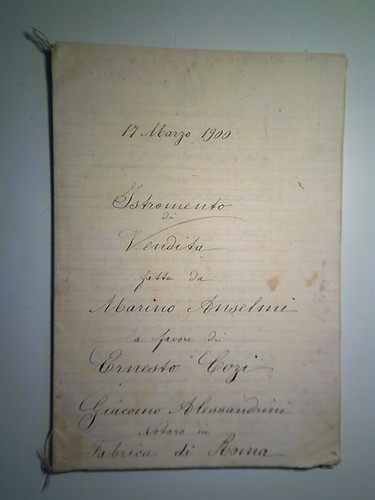 17 Marzo 1900.
Istromento
di
Vendita
fatta da
Marino Anselmi
a favore di
Ernesto Cozi
Giacomo Alessandrini
Notaro in
Fabrica di Roma